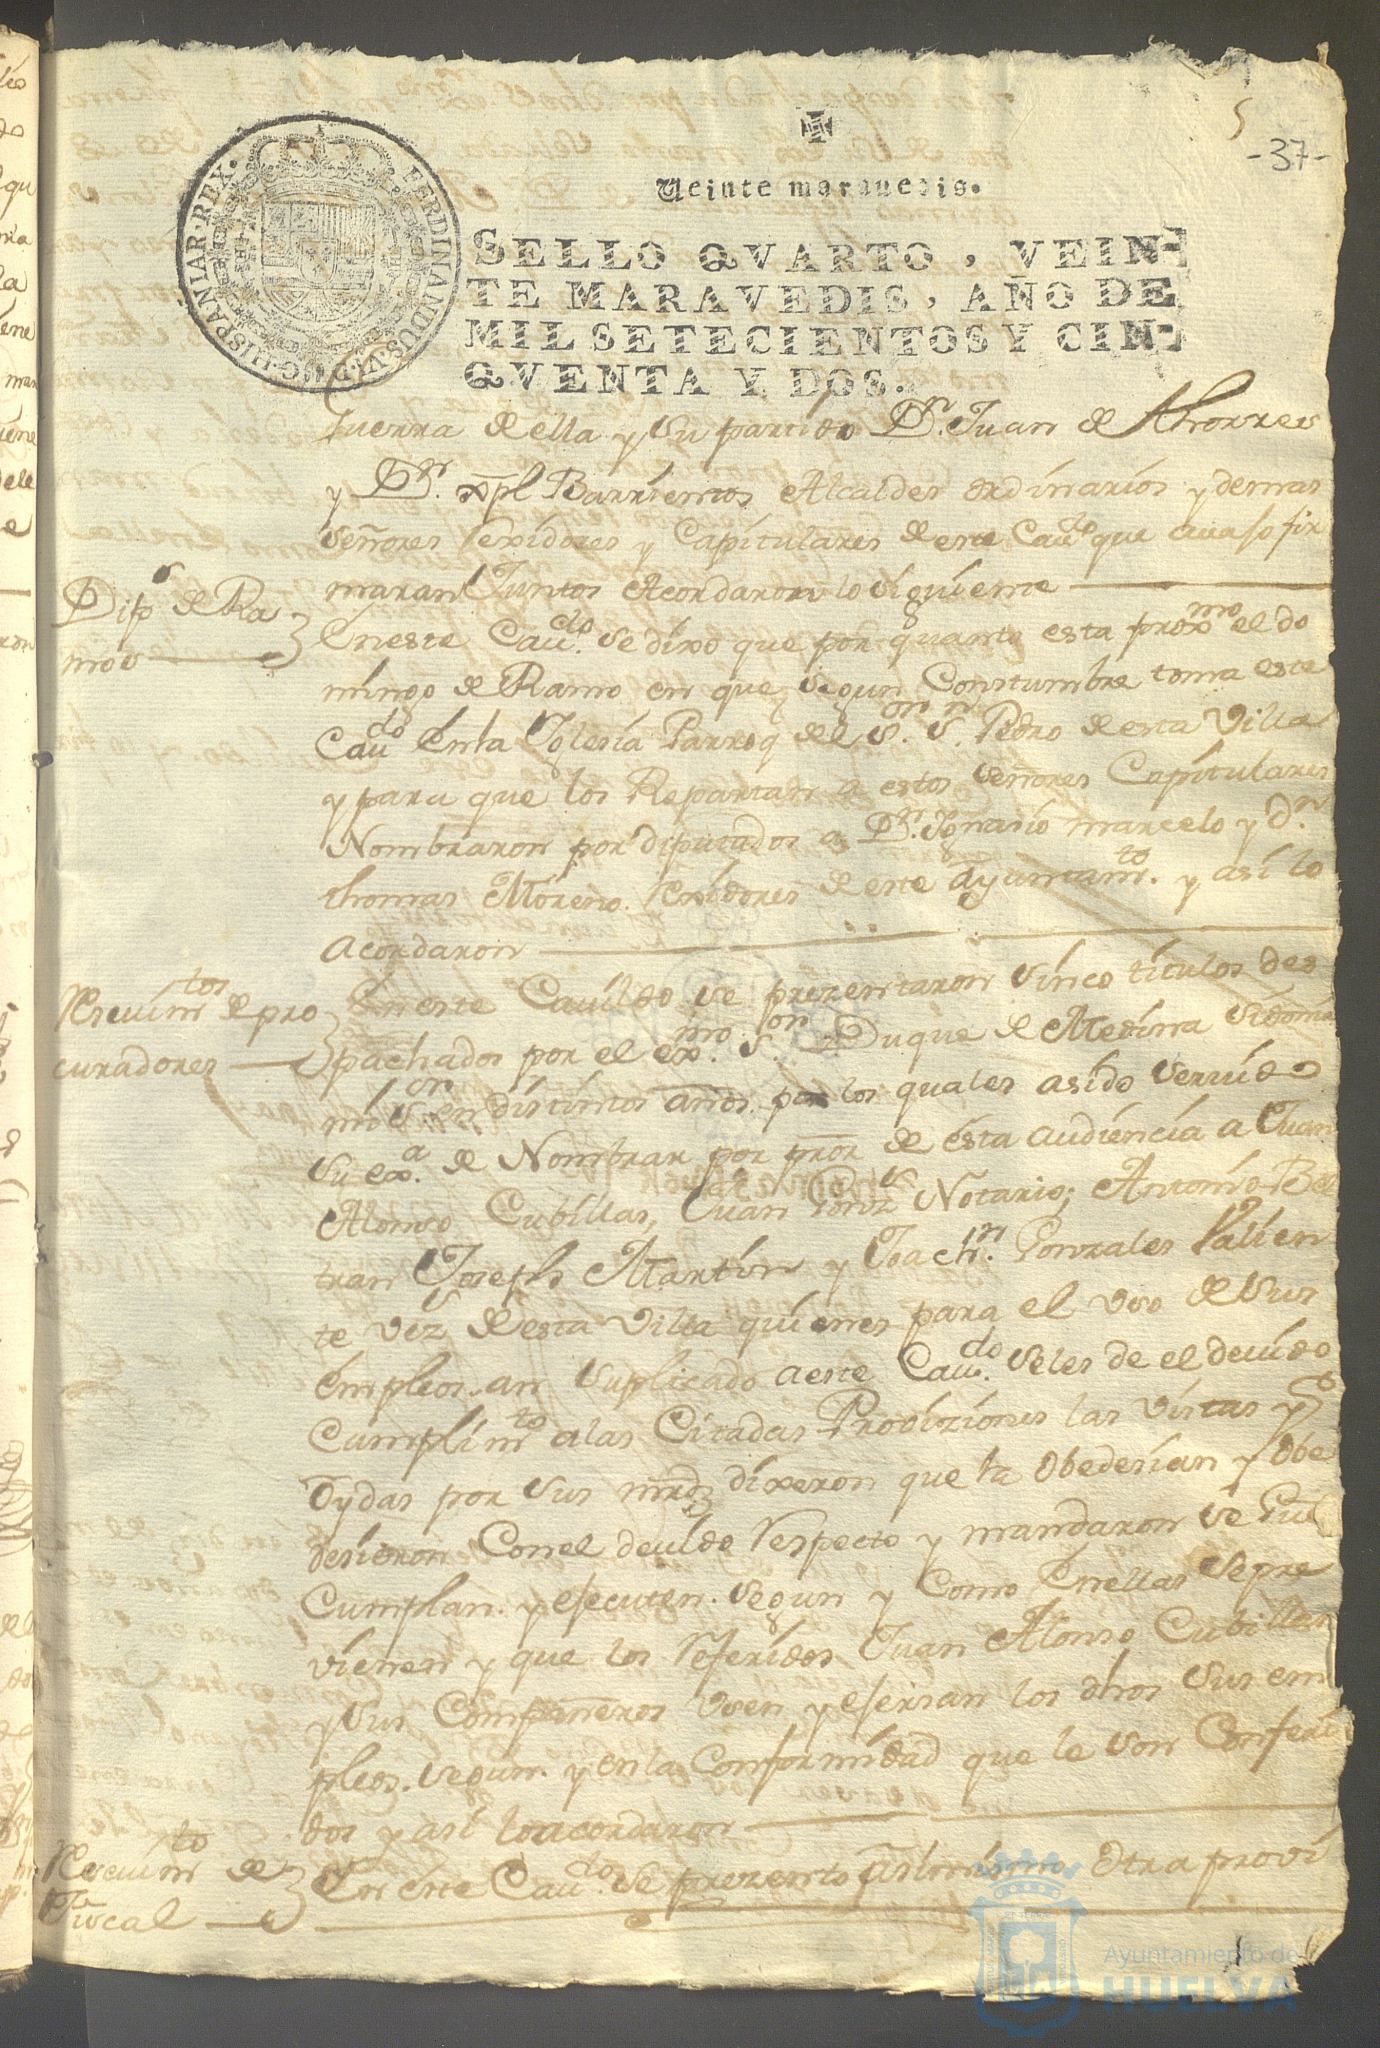 5
-37-
Veinte maravedis.
SELLO QVARTO, VEIN-
TE MARAVEDIS, AÑO DE
MIL SETECIENTOS Y CIN-
QVENTA Y DOS.
FERDINANDUS.VI.D.G.HISPANIAR.REX.
Guerra de ella y su partido Dn. Juan de Thorres
y Dn. xpl Barrientos Alcaldes ordinarios y demas
señores Rexidores y Capitulares de este Caudo que auaso fir
maran Juntos Acordaron lo siguiente
Dips de Ra
mos
En este Caudo. se dixo que por quanto esta proxmo el do
mingo de Ramo en que segun Constumbre toma este
Caudo En la Yglesia Parroq del Sor. Sn. Pedro de esta Villa
y para que los Repartan a estos señores Capitulares
Nombraron por diputados a Dn. Ygnasio Marcelo y Dn
thomas Moreno Rexidores de este Ayuntamto. y así lo
acordaron
Resiuimtos de pro
curadores
En este Cauildo se prezentaron sinco titulos des
pachados por el exmo. Sor. Duque de Medina Sidonia
mi Sor en distintos años por los quales asido seruido
su exa. de Nombrar por pror de esta audiencia a Juan
Alonso Cubillas, Juan Gonz Notario; Antonio Bel
tran Joseph Martin y Joachn. Gonzales Valien
te vezs de esta Villa quienes para el vso de sus
empleos an suplicado a este Caudo. se les de el deuido
Cumplimto a las Citadas Proviziones las vistas y
Oydas por sus mrds dixeron que la Obedesian y Obe
desieron Con el deuido Respecto y mandaron se Gu
Cumplan. y ejecuten. segun y Como En ellas se pre
vienen y que los Referidos Juan Alonso Cubillas
y sus Compañeros vsen y ejersan los dhos sus em
pleos. segun. y en la Conformidad que le son Conferi
dos y asi lo acordaron
Resiuimto de
Fiscal
En este Caudo. se prezento asimismo Otra provi
Ayuntamiento de
HUELVA